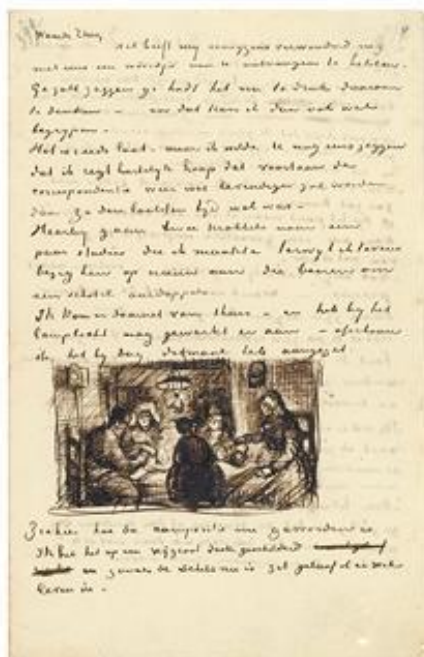 Waarde Theo,
Het heeft mij eenigzins verwonderd nog
niet eens een woordje van U ontvangen te hebben.
Ge zult zeggen ge hadt het veel te druk daaraan
te denken – en dat kan ik dan ook wel
begrijpen –
Het is reeds laat – maar ik wilde U nog eens zeggen
dat ik regt hartelijk hoop dat voortaan de
correspondentie weer wat levendiger zal worden
dan ze den laatsten tijd wel was –
Hierbij gaan twee krabbels naar een
paar studies die ik maakte terwijl ik tevens
bezig ben op nieuw aan die boeren om
een schotel aardappels.
Ik kom er daarnet van thuis – en heb bij het
lamplicht nog gewerkt er aan – ofschoon
ik het bij dag ditmaal heb aangezet.
Ziehier hoe de compositie nu geworden is
Ik heb het op een vrij groot doek geschilderd
en zooals de schets nu is zit geloof ik er wel
leven in –